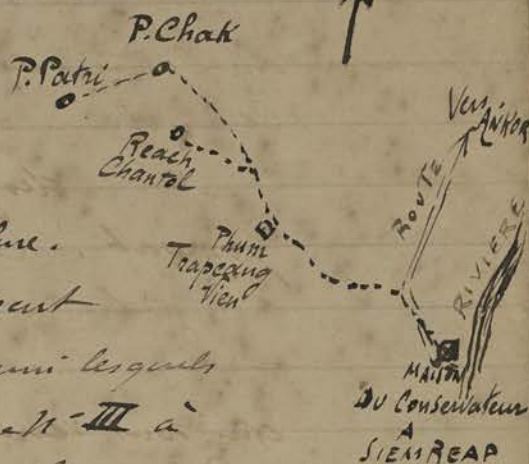 P. Chak
P. Patri
Reach
Chantol
Phum
Trapeang
Vien
Vers
ANKOR
ROUTE
RIVIERE
MAISON
DU Conservateur
A
SIEMREAP
lesquels
III à